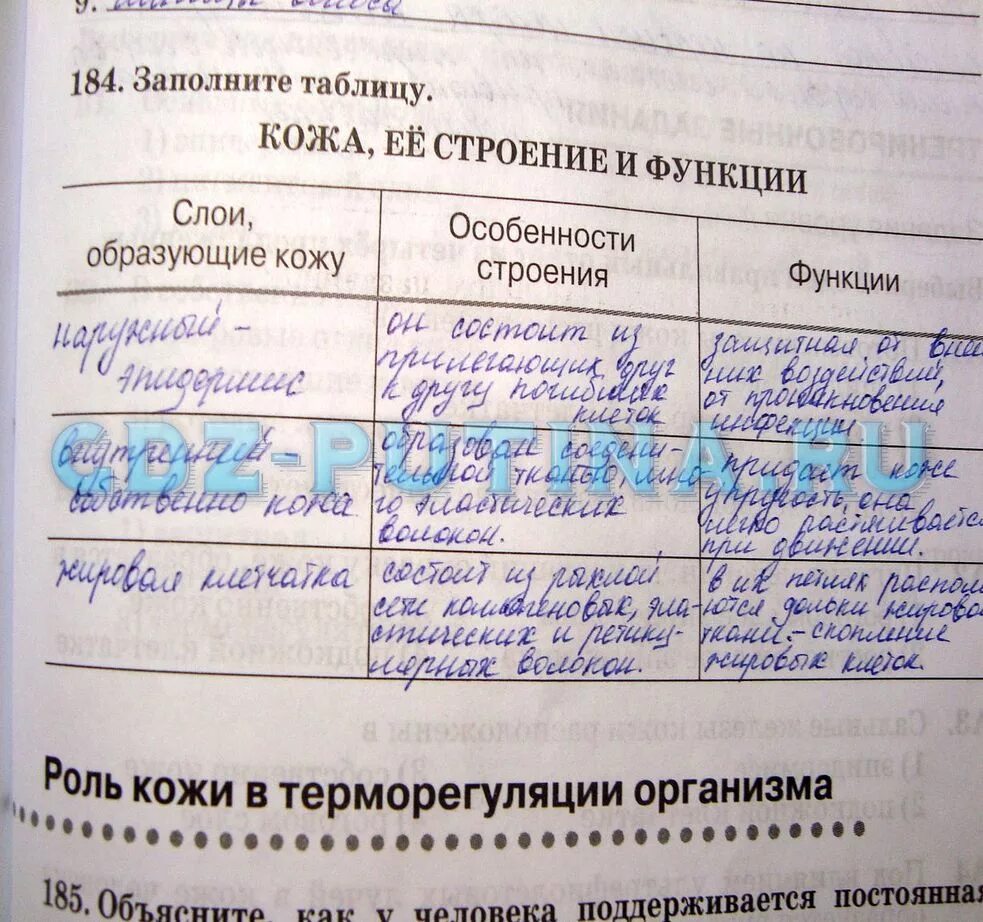 184. Заполните таблицу.
КОЖА, ЕЁ СТРОЕНИЕ И ФУНКЦИИ
Слои,
образующие кожу
Особенности
строения
Функции
наружный -
эпидермис
он состоит из
прилегающих друг
к другу погибших
клеток
защитная от внеш
них воздействий,
от проникновения
инфекции
внутренний -
собственно кожа
образован соедени-
тельной тканью, мно-
го эластических
волокон.
придает коже
упругость, она
легко растягивается
при движении.
жировая клетчатка
состоит из рыхлой
сети коллагеновых, эла-
стических и ретику-
лярных волокон.
в их петлях распола
ются дольки жировой
ткани - скопление
жировых клеток.
GDZ-PUTINA.RU
Роль кожи в терморегуляции организма
185. Объясните, как у человека поддерживается постоянная